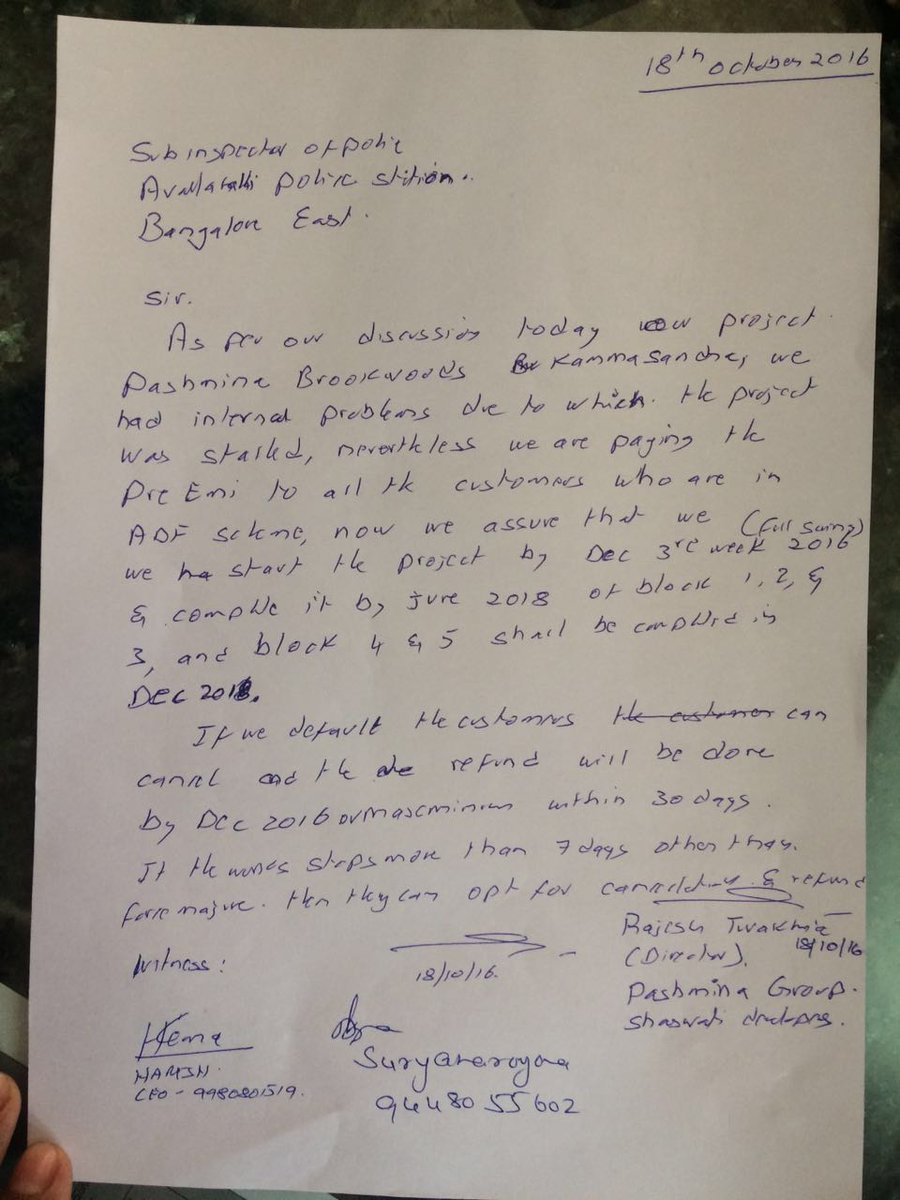 18th october 2016
Sub inspector of polic
Avalahalli police stition..
Bangalore East.
Sir.
As per our discussion today our project.
Pashmina Brookwoods Kammasandra, we
had internal problems due to which. the project
was stalled, nevertheless we are paying the
Pre Emi to all the customers who are in
ADF scheme, now we assure that we (full swing)
we start the project by Dec 3rd week 2016
& complete it by june 2018 of block 1, 2, &
3, and block 4 & 5 shall be completed in
DEC 2018.
If we default the customers the customer can
cancel and the refund will be done
by Dec 2016 or maxcminium within 30 days.
If the works stops more than 7 days other than.
force majure. then they can opt for cancellation & refund
Rajesh
(Director). 18/10/16
Pashmina Group.
Shaswati
Witness:
18/10/16.
Hema
HARISH.
CEO - 9980801519.
Suryanarayana
94480 55602